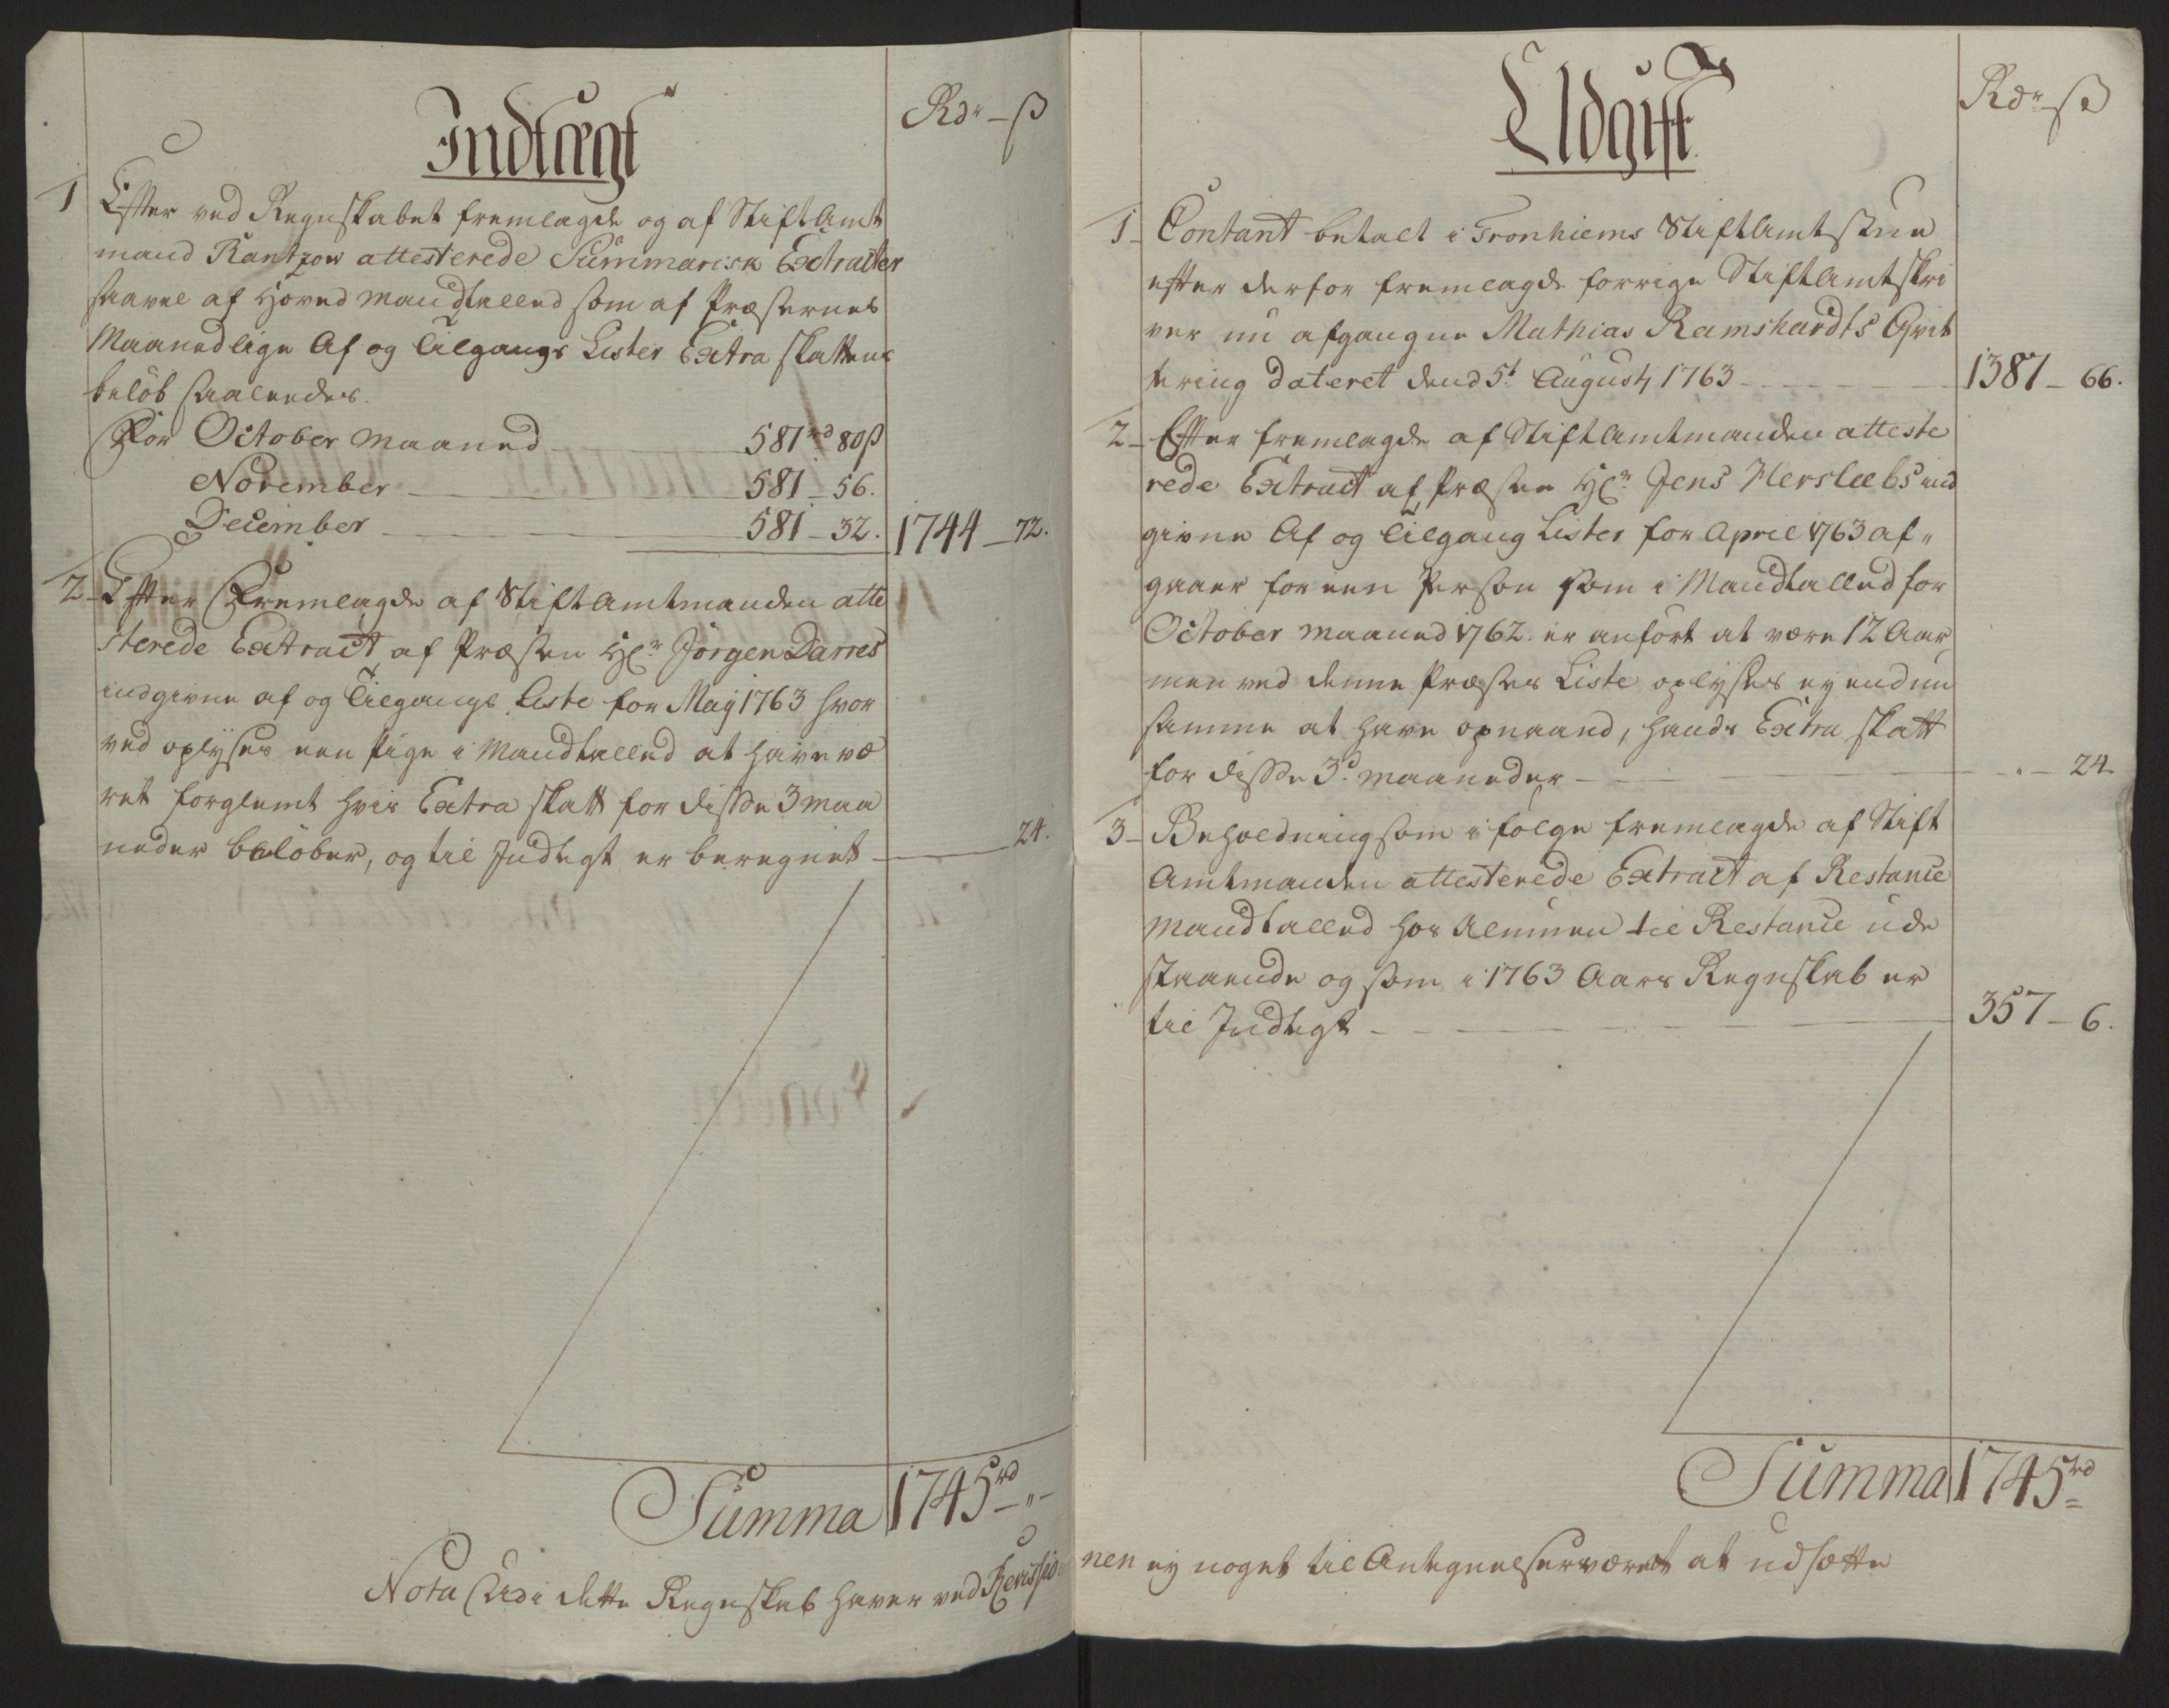 Indtægt
Rdr - ß
1 Efter ved Regnskabet fremlagde og af StiftAmt
mand Rantzow attesterede Summarisk Extracter
saavel af Hoved Mandtalled som af Præsternes
Maanedlige Af og Tilgangs Lister Extra skattens
beløb saaledes.
For October Maaned 581rd 80ß
November 581 - 56.
December 581 - 32. 1744 - 72.
2 - Efter Fremlagde af Stiftamtmanden atte
sterede Extract, af Præsten Hr. Jørgen Darres
indgivne af og Tilgangs Liste for Maÿ 1763 hvor
ved oplyses een pige i Mandtalled at have væ
ret forglemt hvis Extra skatt for disse 3 maa
neder beløber, og til Indtegt er beregnet - 24.
Summa 1745rd - " -
Udgift
Rdr - ß
1 - Contant betalt i Tronhiems StiftAmtstue
efter derfor fremlagde forrige StiftAmtskri
ver nu afgangne Mathias Ramshardts Qvit
tering dateret dend 5t August 1763 - 1387 - 66.
2 - Efter fremlagde af StiftAmtmanden atteste
rede Extract af Præsten Hr. Jens Hersleebs ind
givne Af og Tilgang Lister for April 1763 af"
gaaer for een Person som i Mandtalled for
October maaned 1762 er anført at være 12 Aar
men ved denne Præstes Liste oplyses ey endnu
samme at have opnaaed, hands Extra skatt
for disse 3de maaneder - 24
3 - Beholdning som i følge fremlagde af Stift
Amtmanden attesterede Extract af Restance
Mandtalled hos Almuen til Restance ude
staaende og som i 1763 Aars Regnskab er
til Indtegt - 357 - 6.
Summa 1745rd =
Nota Ved i dette Regnskab haver ved Revissio nen ey noget til Antegnelser været at udsætte